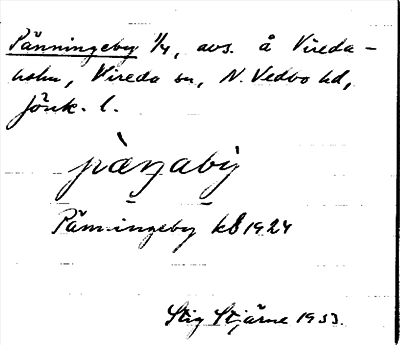 Pänningeby 1/4, avs. å Vireda-
holm, Vireda sn, N. Vedbo hd,
Jönk. l.
pàŋabị̀
Pänningeby kB 1924
Stig Stjärne 1933.